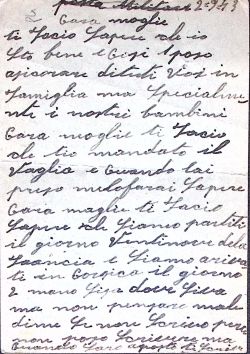 posta Militare 2-943
Cara moglie
ti facio Sapere che io
Sto bene e Cosi Spero
asicorare di tuti Voi in
famiglia ma Specialme
nte i nostri bambini
Cara moglie ti facio
che tio mandato il
Vaglia e Quando lai
preso melofarai Sapere
Cara moglie ti facio
Sapere che Siamo partiti
il giorno Ventinove dela
francia e Siamo arriva
ti in Corsica il giorno
2 mano dove
ma non pensare male
dime Se non Scrivo
non Scrivere ma
Quando Sarò aposto ti Scrivo